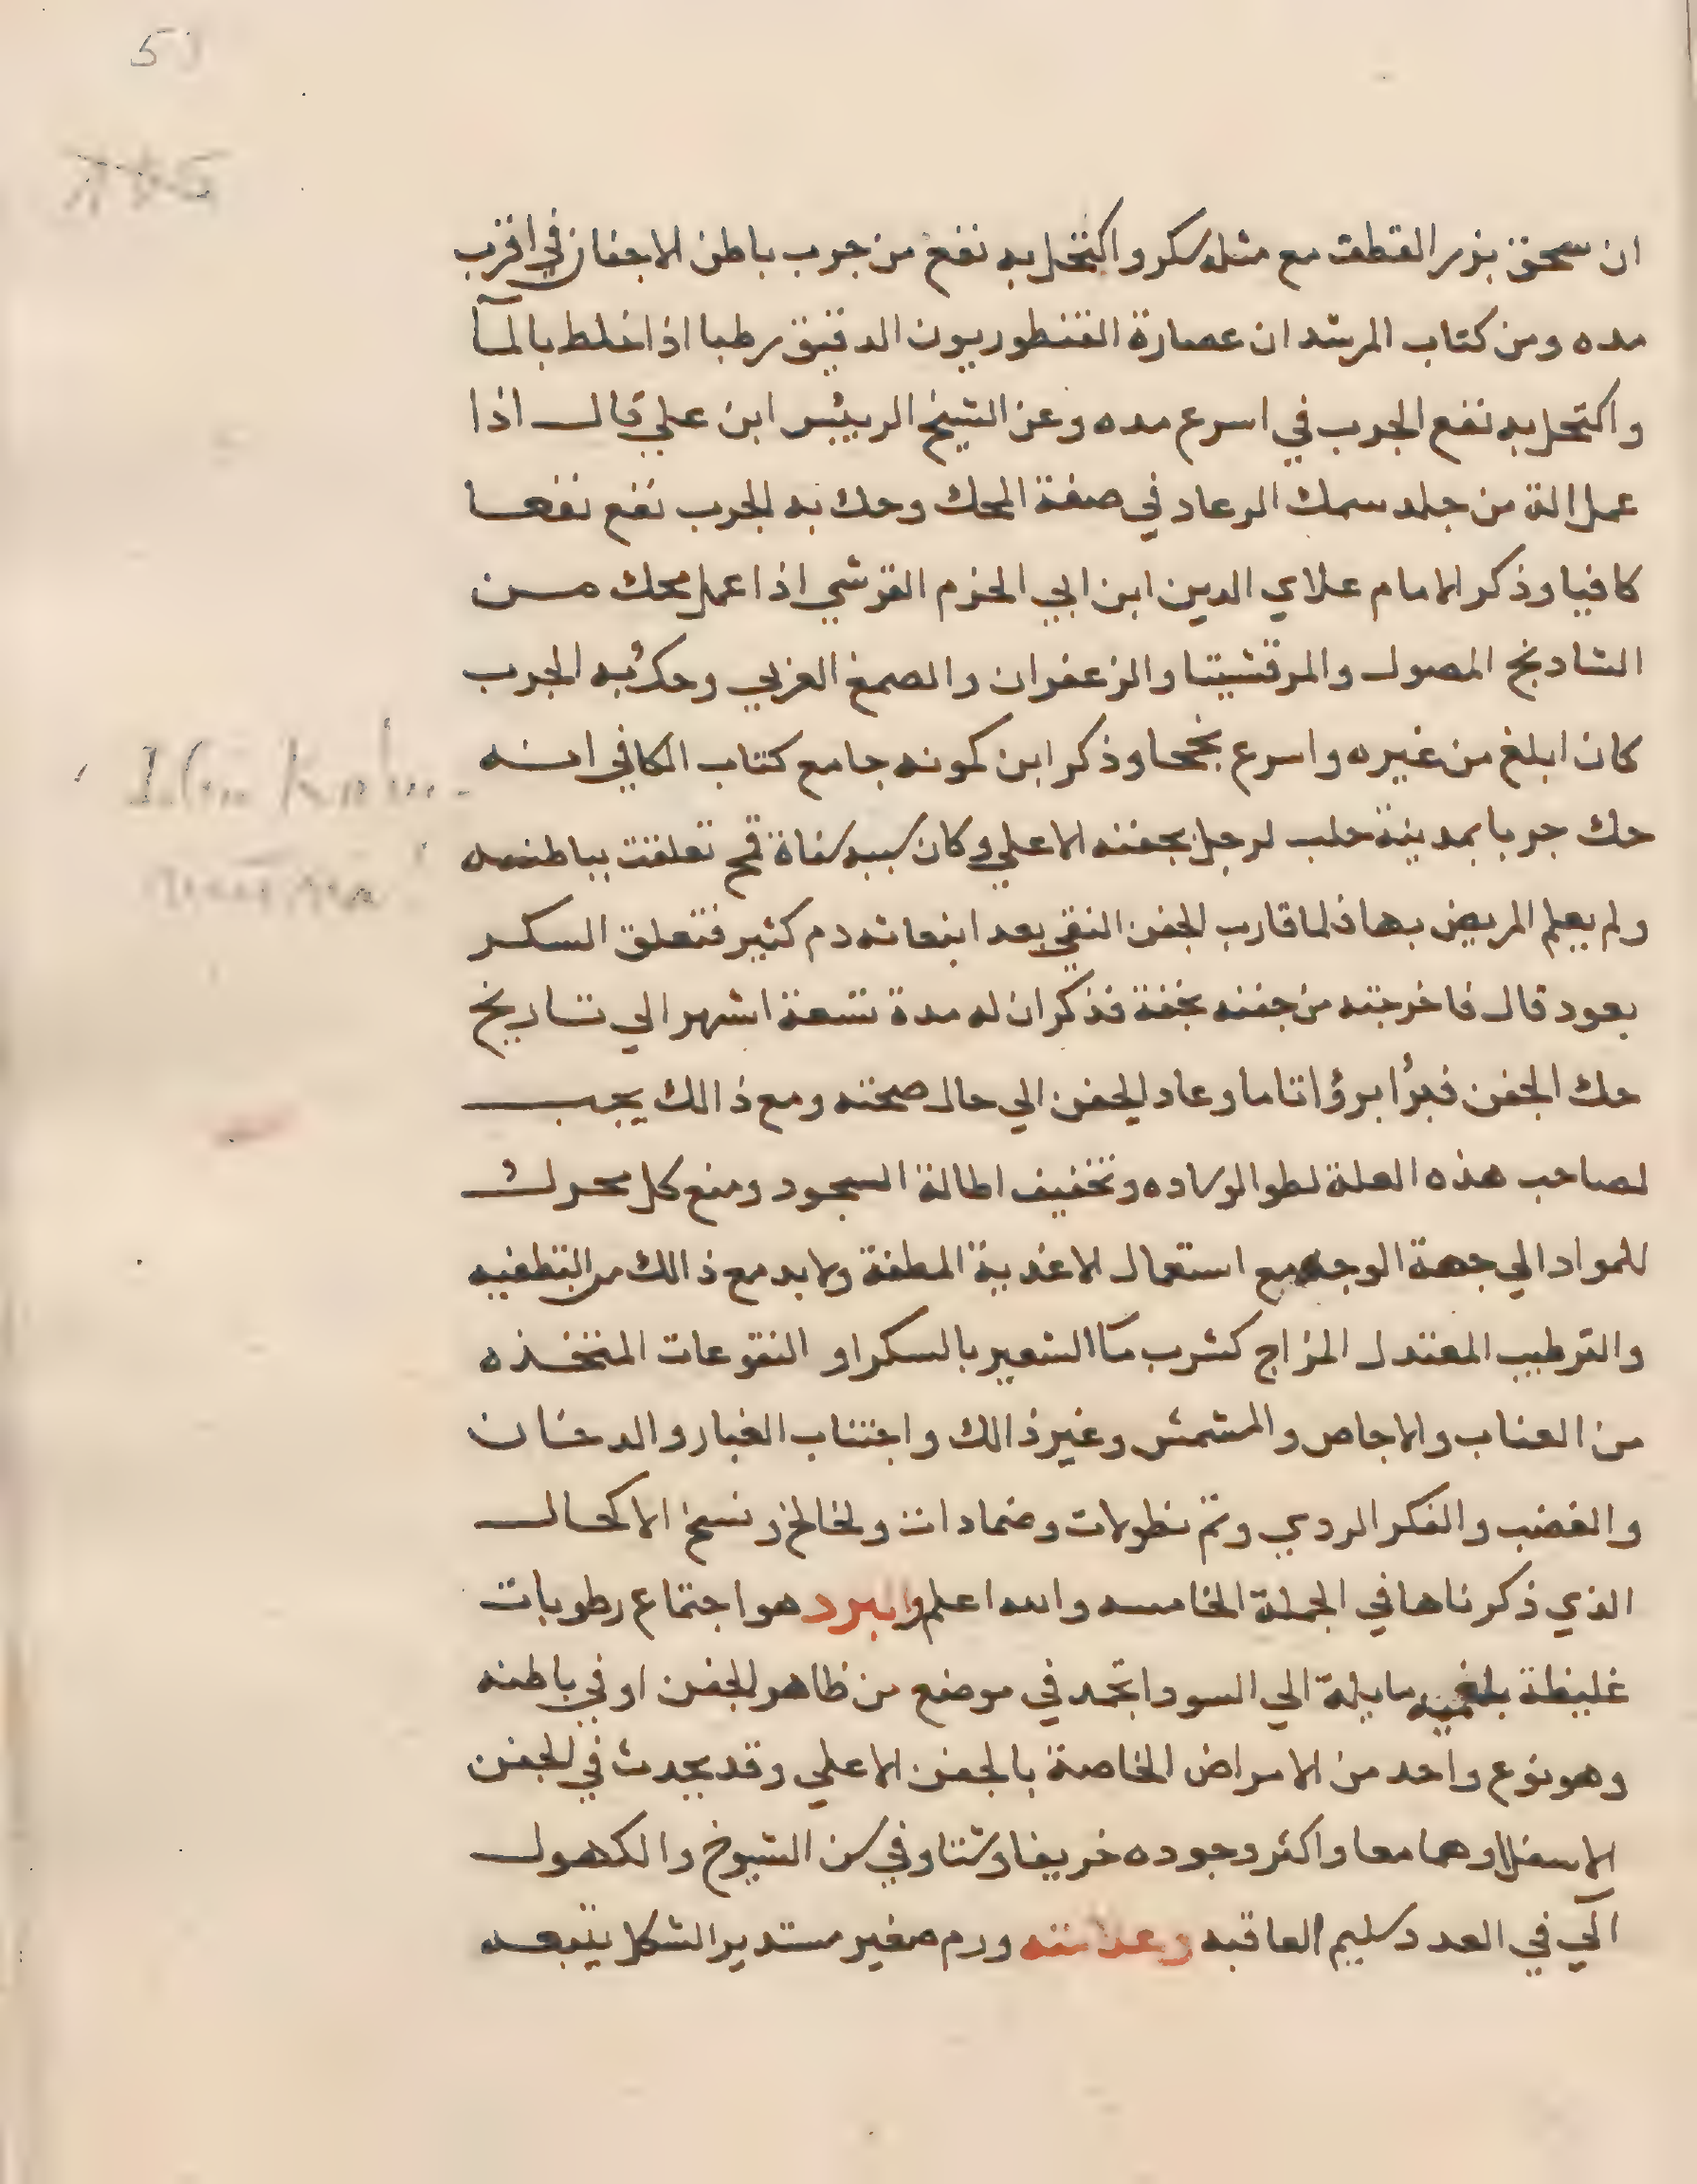 51
ان سحق بزر القطف مع مثله سكر واكتحل به نفع من جرب باطن الاجفان في اقرب
مده ومن كتاب المرشد ان عصارة القنطوريون الدقيق رطبا اذا خلط بالمآ
واكتحل به نفع الجرب في اسرع مده وعن الشيخ الرييس ابن علي قال اذا
عمل الة من جلد سمك الرعاد في صفة المحك وحك به الجرب نفع نفعا
كافيا وذكر الامام علاي الدين ابن ابي الحزم القرشي اذا عمل محك من
الشادنج المصول والمرقشيتا والزعفران والصمغ العربي وحك به الجرب
كان ابلغ من غيره واسرع نجحا وذكر ابن كمونه جامع كتاب الكافي انه
حك جربا بمدينة حلب لرجل بجفنه الاعلي وكان سببه سفاة قمح تعلقت بباطنه
ولم يعلم المريض بها فلما قارب الجفن النقي بعد انبعاثه دم كثير فتعلق السكر
بعود قال فاخرجته من جفنه بخفة فذكر ان له مدة تسعة اشهر الي تاريخ
حك الجفن فبرأ برؤا تاما وعاد الجفن الي حال صحته ومع ذالك يجب
لصاحب هذه العلة لطو الوساده وتخفيف اطالة السجود ومنع كل محرك
للمواد الي جهة الوجه مع استعمال الاغذية المطفة ولابد مع ذالك من التطفيه
والترطيب المعتدل المزاج كشرب مآ الشعير بالسكر او النقوعات المتخذه
من العناب والاجاص والمشمش وغير ذالك واجتناب الغبار والدخان
والغضب والفكر الردي وثم نطولات وضمادات ولخالخ ونسخ الاكحال
الذي ذكرناها في الجملة الخامسه والله اعلم والبرد هو اجتماع رطوبات
غليظة بلغميه مايلة الي السودا تجمد في موضع من ظاهر الجفن او في باطنه
وهو نوع واحد من الامراض الخاصة بالجفن الاعلي وقد يحدث في الجفن
الاسفل او هما معا واكثر وجوده خريفا وشتا وفي سن الشيوخ والكهول
آلي في العدد سليم العاقبه وعلامته ورم صغير مستدير الشكل يتبعه